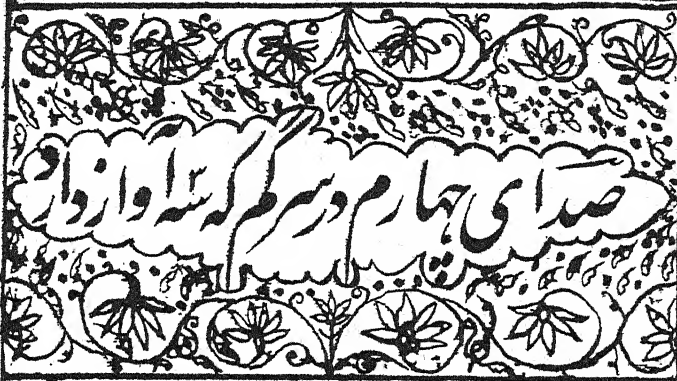 صدای چهارم در سرگم که سه آواز دارد